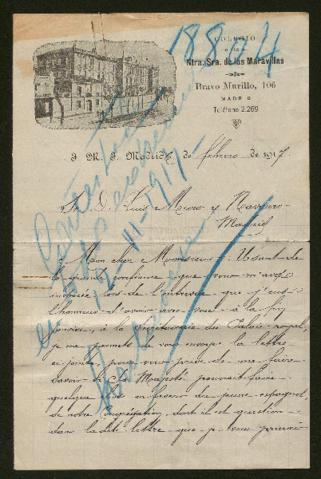 COLEGIO
DE
Ntra. Sra. de las Maravillas
Bravo Murillo, 106
MADRID
Teléfono 2.269
18804
J. M. J. Madrid, de febrero de 1917
S. D. Luis Moro y Navarro
Madrid
Mon cher Monsieur: Usant de
la grande confiance que vous m'avez
lors de l'entrevue que j'eus
l'honneur d'avoir avec vous à la fin
janvier, à la du Palais royal,
je me permets de vous envoyer la lettre
ci-jointe, pour vous prier de me faire
savoir si Sa Majesté pourrait faire
quelque en faveur du jeune espagnol,
de notre Congrégation, dont il est question
dans la dite lettre que je vous